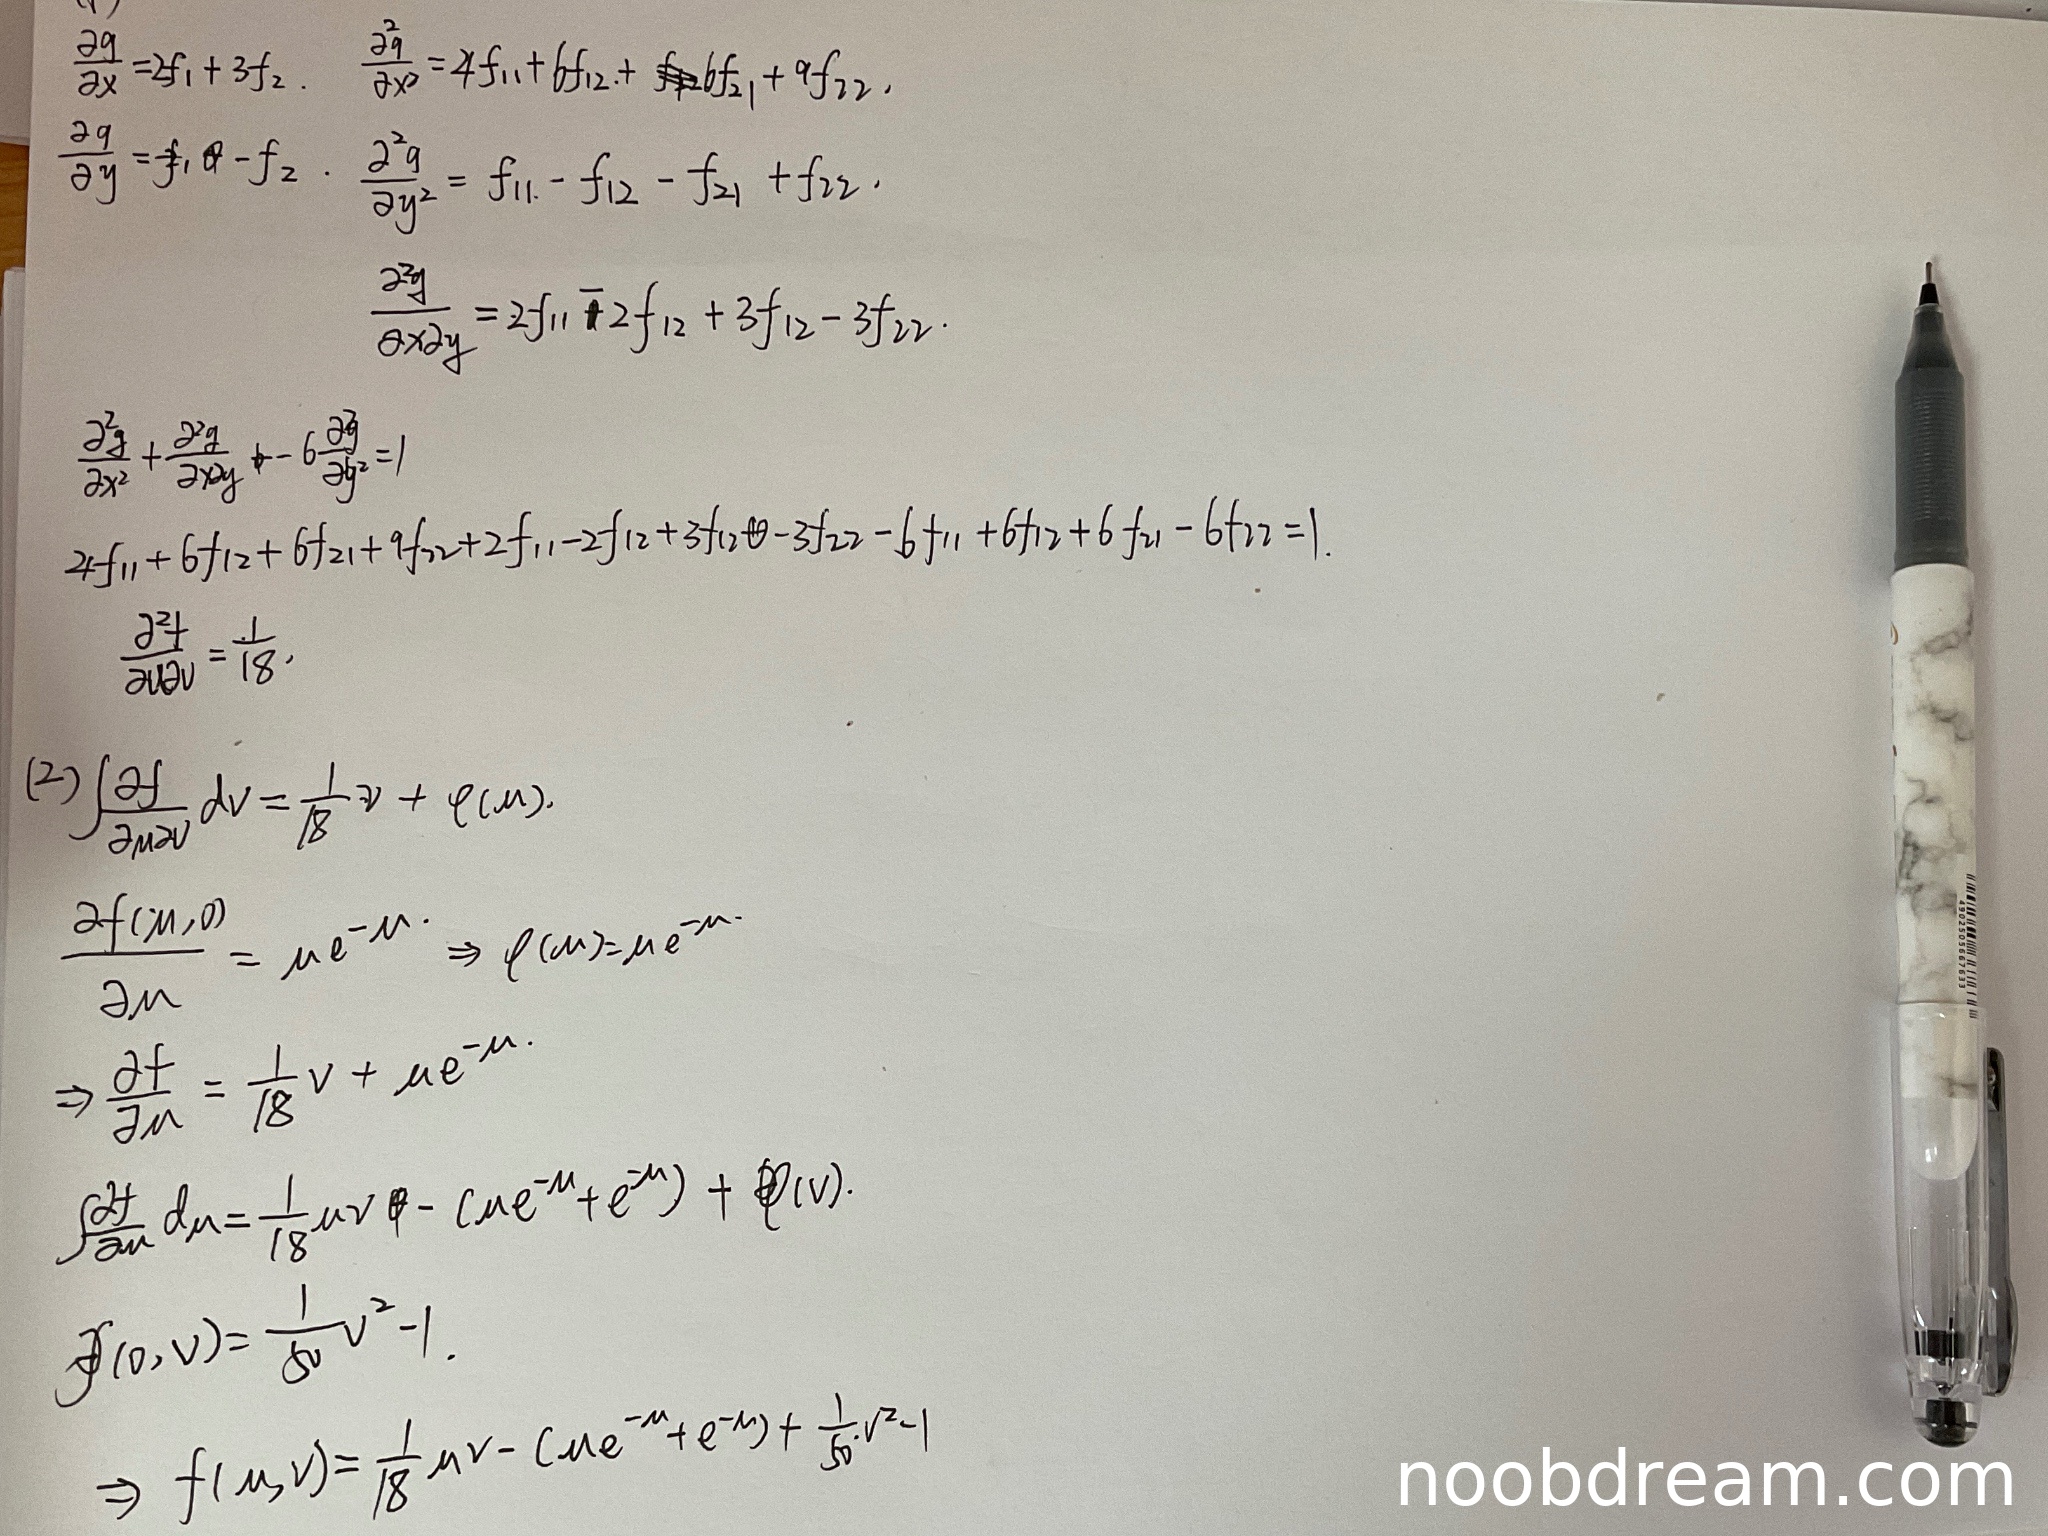 (1)
∂g/∂x = 2f₁ + 3f₂. ∂²g/∂x² = 4f₁₁ + 6f₁₂ + 6f₂₁ + 9f₂₂.
∂g/∂y = f₁ - f₂. ∂²g/∂y² = f₁₁ - f₁₂ - f₂₁ + f₂₂.
∂²g/∂x∂y = 2f₁₁ - 2f₁₂ + 3f₁₂ - 3f₂₂.
∂²g/∂x² + ∂²g/∂x∂y - 6 ∂²g/∂y² = 1
4f₁₁ + 6f₁₂ + 6f₂₁ + 9f₂₂ + 2f₁₁ - 2f₁₂ + 3f₁₂ - 3f₂₂ - 6f₁₁ + 6f₁₂ + 6f₂₁ - 6f₂₂ = 1.
∂²f/∂u∂v = 1/18.
(2) ∫ ∂f/∂u∂v dv = 1/18 v + φ(u).
∂f(u,0)/∂u = ue^(-u). ⇒ φ(u) = ue^(-u).
⇒ ∂f/∂u = 1/18 v + ue^(-u).
∫ ∂f/∂u du = 1/18 uv - (ue^(-u) + e^(-u)) + φ(v).
f(0,v) = 1/50 v² - 1.
⇒ f(u,v) = 1/18 uv - (ue^(-u) + e^(-u)) + 1/50 v² - 1
4902505567633
noobdream.com